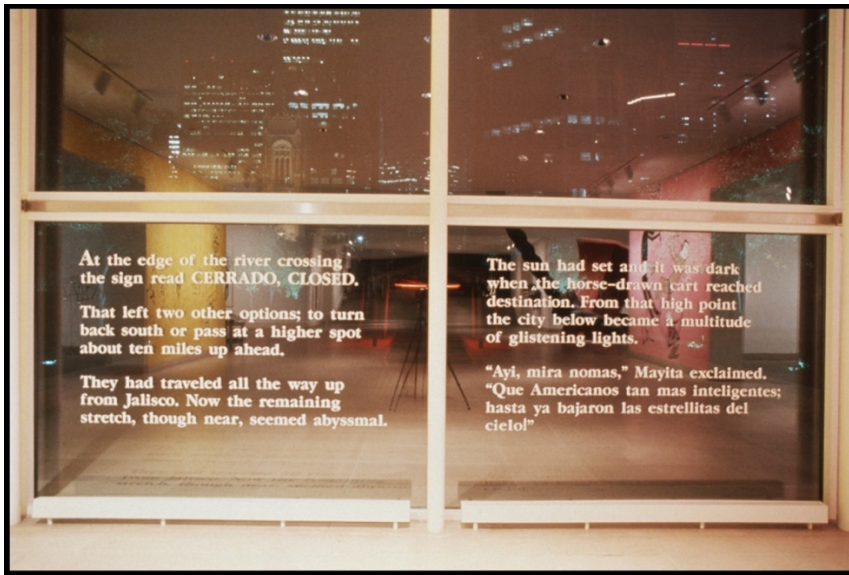 At the edge of the river crossing
the sign read CERRADO, CLOSED.
That left two other options; to turn
back south or pass at a higher spot
about ten miles up ahead.
They had traveled all the way up
from Jalisco. Now the remaining
stretch, though near, seemed abyssmal.
The sun had set and it was dark
when the horse-drawn cart reached
destination. From that high point
the city below became a multitude
of glistening lights.
"Ayi, mira nomas," Mayita exclaimed.
"Que Americanos tan mas inteligentes;
hasta ya bajaron las estrellitas del
cielo!"